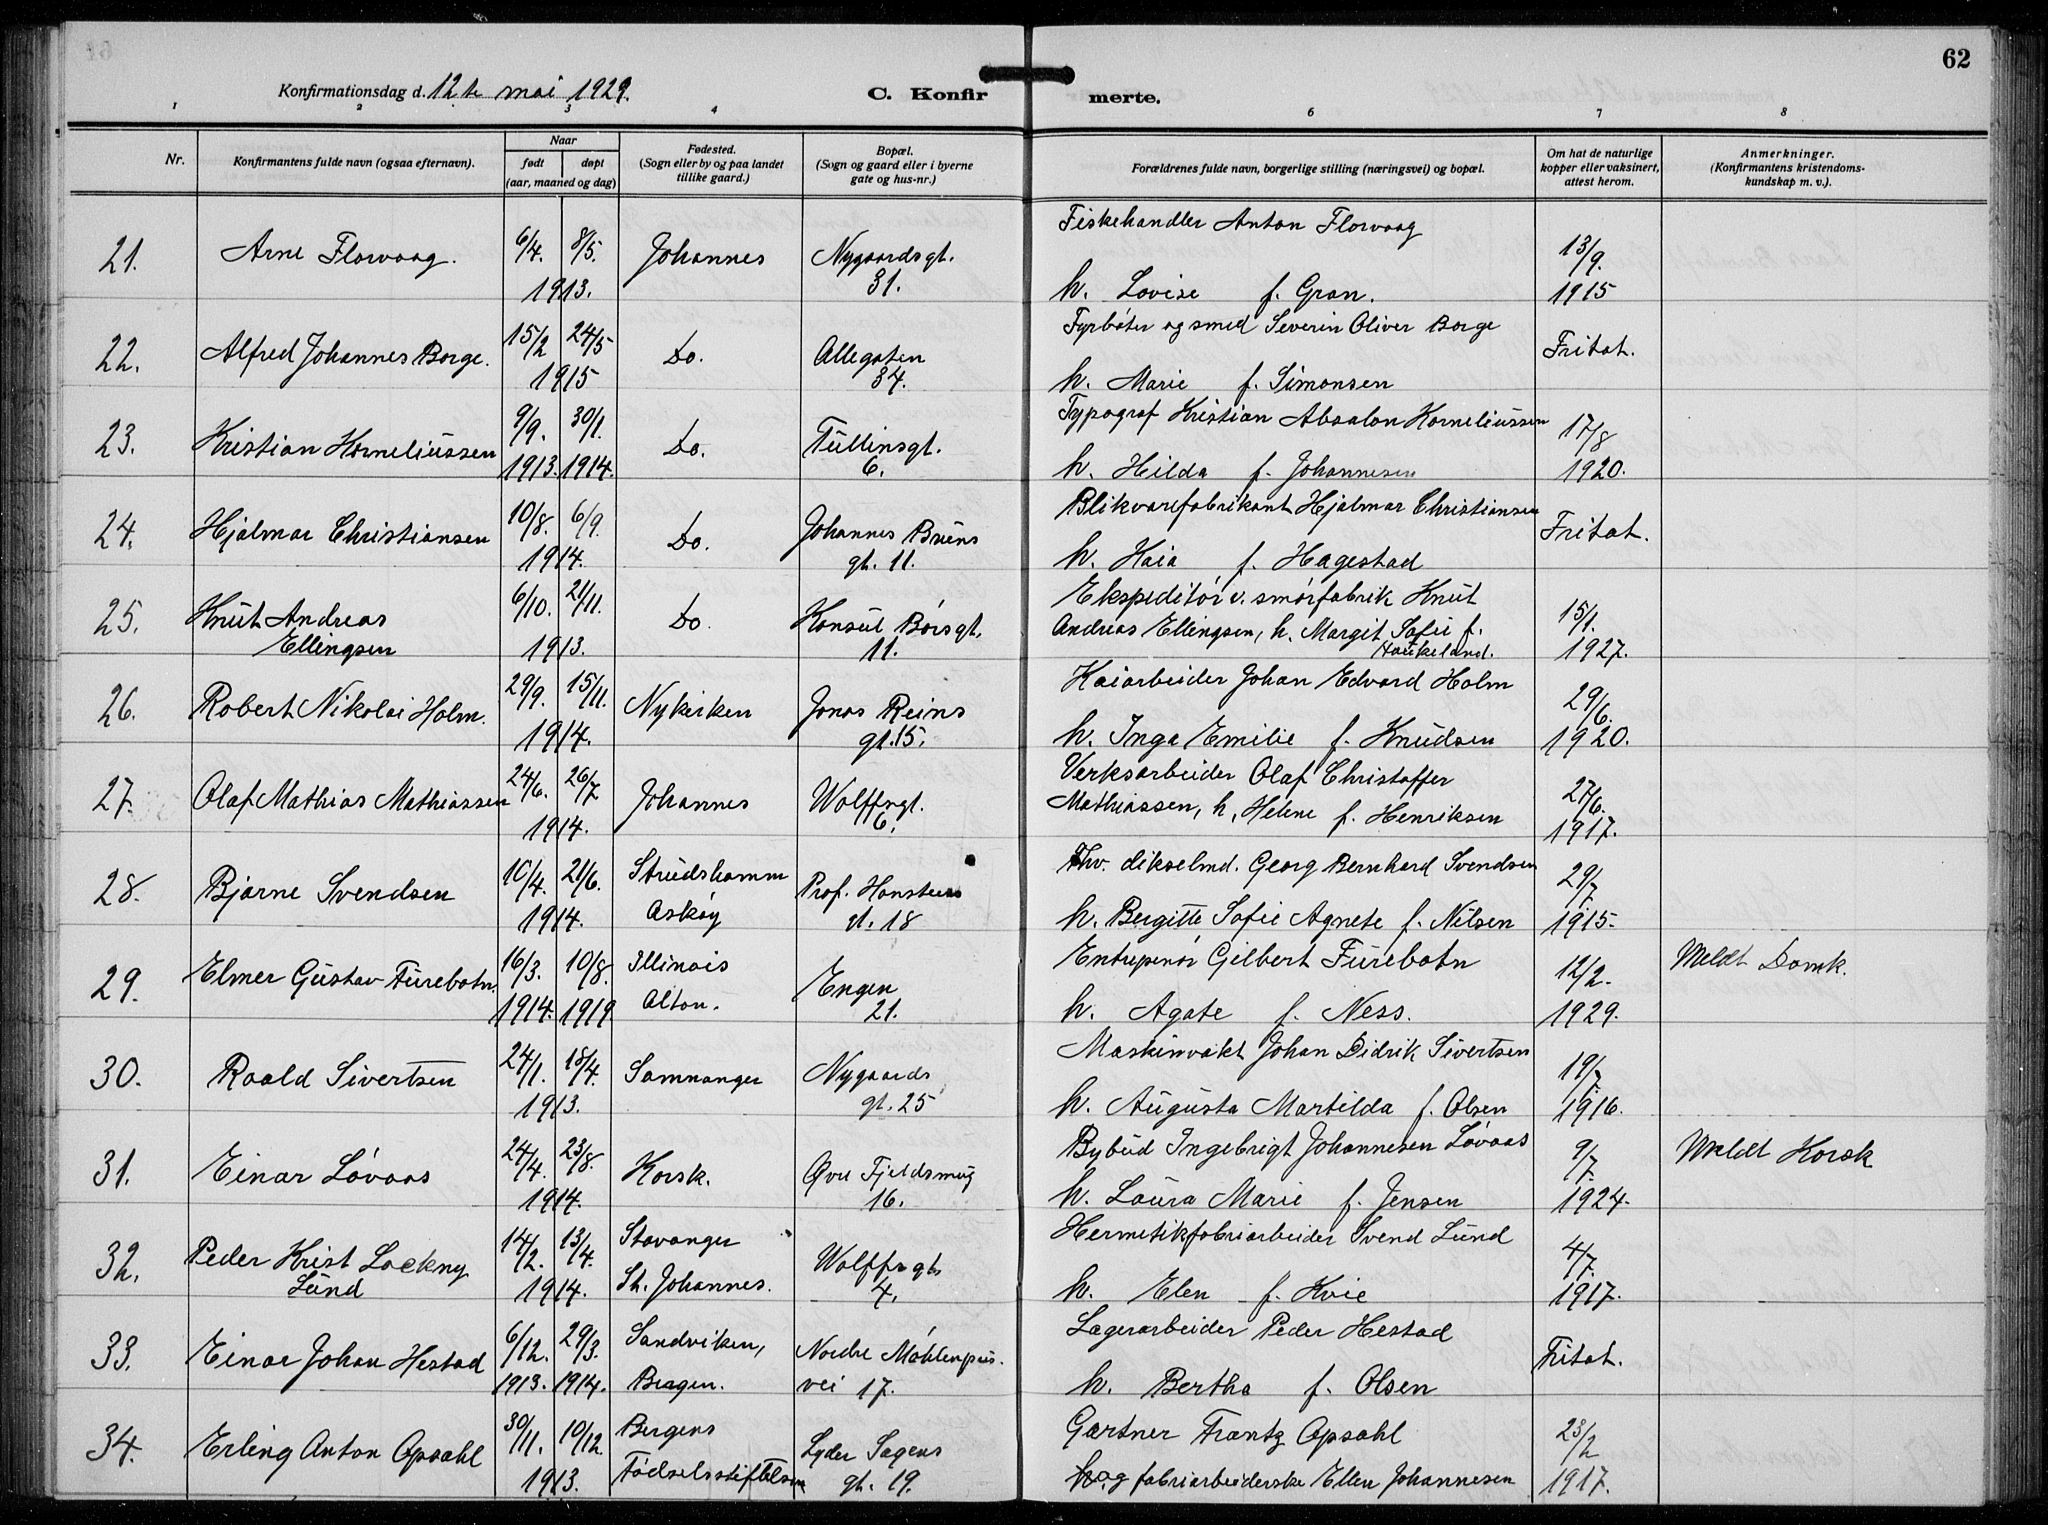 62
Konfirmationsdag d. 12te mai 1929.
C. Konfirmerte.
1 2 3 4 6 7 8
Nr.
Konfirmantens fulde navn (ogsaa efternavn).
Naar
født
døpt
(aar, maaned og dag)
Fødested.
(Sogn eller by og paa landet
tillike gaard.)
Bopæl.
(Sogn og gaard eller i byerne
gate og hus-nr.)
Forældrenes fulde navn, borgerlige stilling (næringsvei) og bopæl.
Om hat de naturlige
kopper eller vaksinert,
attest herom.
Anmerkninger.
(Konfirmantens kristendoms-
kundskap m. v.).
21. Arne Florvaag. 6/4. 8/5. Johannes Nygaardsgt. Fiskehandler Anton Florvaag 13/9.
1913. 31. h. Lovise f. Gran. 1915
22. Alfred Johannes Borge. 15/2 24/5 Do. Allegaten Fyrbøter og smed Severin Oliver Borge Fritat.
1915 34. h. Marie f. Simonsen
23. Kristian Korneliussen 9/9. 30/1. Do. Tullinsgt. Typograf Kristian Absalon Korneliussen 17/8
1913. 1914. 6. h. Hilda f. Johannesen 1920.
24. Hjalmar Christiansen 10/8. 6/9. Do. Johannes Bruns Blikvarefabrikant Hjalmar Christiansen Fritat.
1914. gt. 11. h. Kaia f. Hagestad
25. Knut Andreas 6/10. 21/11. Do. Konsul Børsgt. Ekspeditør v. smørfabrik Knut 15/1.
Ellingsen 1913. 11. Andreas Ellingsen, h. Margit Sofie f. 1927.
Haukeland.
26. Robert Nikolai Holm. 29/9. 15/11. Nykirken Jonas Reins Kaiarbeider Johan Edvard Holm 29/6.
1914. gt. 15. h. Inga Emilie f. Knudsen 1920.
27. Olaf Mathias Mathiassen 24/6. 26/7 Johannes Wolffsgt. Verksarbeider Olaf Christoffer 27/6.
1914. 6. Mathiassen, h. Helene f. Henriksen 1917.
28. Bjarne Svendsen 10/4. 21/6. Strudshamn Prof. Hansteens Fhv. dikselmd. Georg Bernhard Svendsen 29/7
1914. Askøy gt. 18 h. Bergitte Sofie Agnete f. Nilsen 1915.
29. Elmer Gustav Furebotn. 16/3. 10/8. Illinois Engen Entrepenør Gilbert Furebotn 12/2. Meldt Domk.
1914. 1919 Alton. 21. h. Agate f. Ness. 1929.
30. Roald Sivertsen 24/1. 18/4. Samnanger Nygaards Maskinvakt Johan Didrik Sivertsen 19/7
1913. gt. 25 h. Augusta Martilda f. Olsen 1916.
31. Einar Løvaas 24/4. 23/8. Korsk. Øvre Fjeldsmug Bybud Ingebrigt Johannesen Løvaas 9/7. Meldt Korsk
1914. 16. h. Laura Marie f. Jensen 1924.
32. Peder Krist Lockny 14/2. 13/4. Stavanger Wolffsgt. Hermetikfabriarbeider Svend Lund 4/7.
Lund 1914. St. Johannes. 4. h. Elen f. Kvie 1917.
33. Einar Johan Hestad 6/12. 29/3. Sandviken, Nordre Møhlenpris. Lagerarbeider Peder Hestad Fritat.
1913. 1914. Bergen. vei 17. h. Bertha f. Olsen
34. Erling Anton Opsahl 30/11. 10/12. Bergens Lyder Sagens Gartner Frantz Opsahl 23/2
1913. Fødselsstiftelse gt. 19. og fabriarbeiderske Ellen Johannesen 1917.